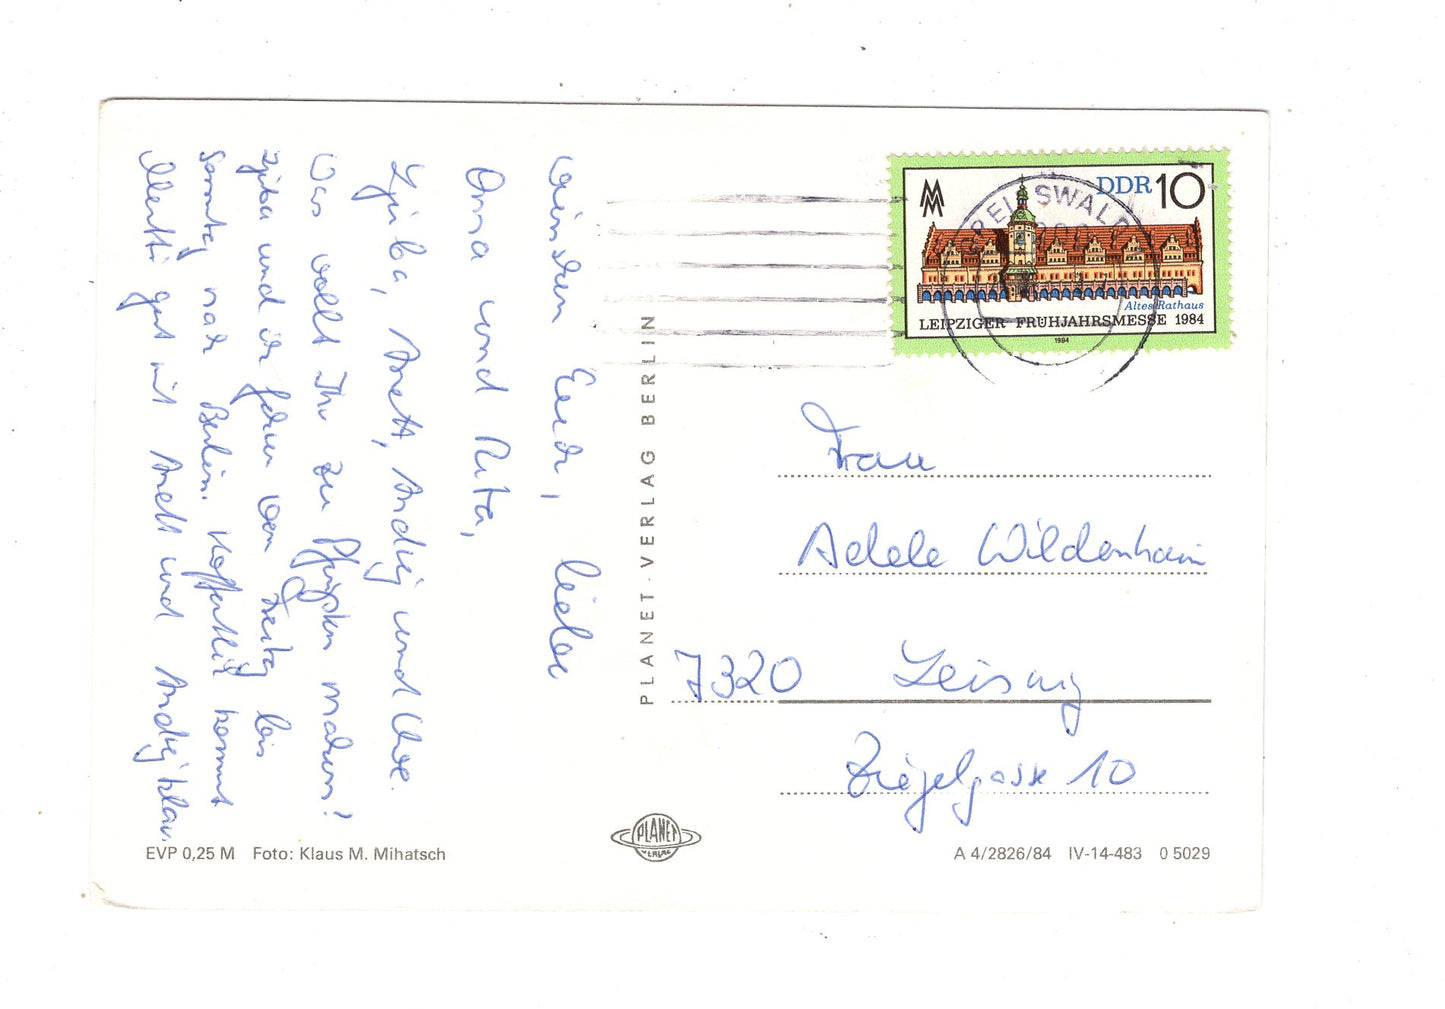 wünschen Euch, liebe
Oma und Rita,
Ljuba, Anett, Andrej und Uwe.
Was wollt Ihr zu Pfingsten machen?
Ljuba und ich fahren von Freitag bis
Sonntag nach Berlin. Hoffentlich kommt
Mutti gut mit Anett und Andrej klar.
DDR 10
Altes Rathaus
LEIPZIGER FRÜHJAHRSMESSE 1984
1984
GREIFSWALD
PLANET-VERLAG BERLIN
Frau
Adele Wildenhain
7320 Leisnig
Ziegelgasse 10
PLANET
VERLAG
EVP 0,25 M Foto: Klaus M. Mihatsch
A 4/2826/84 IV-14-483 0 5029